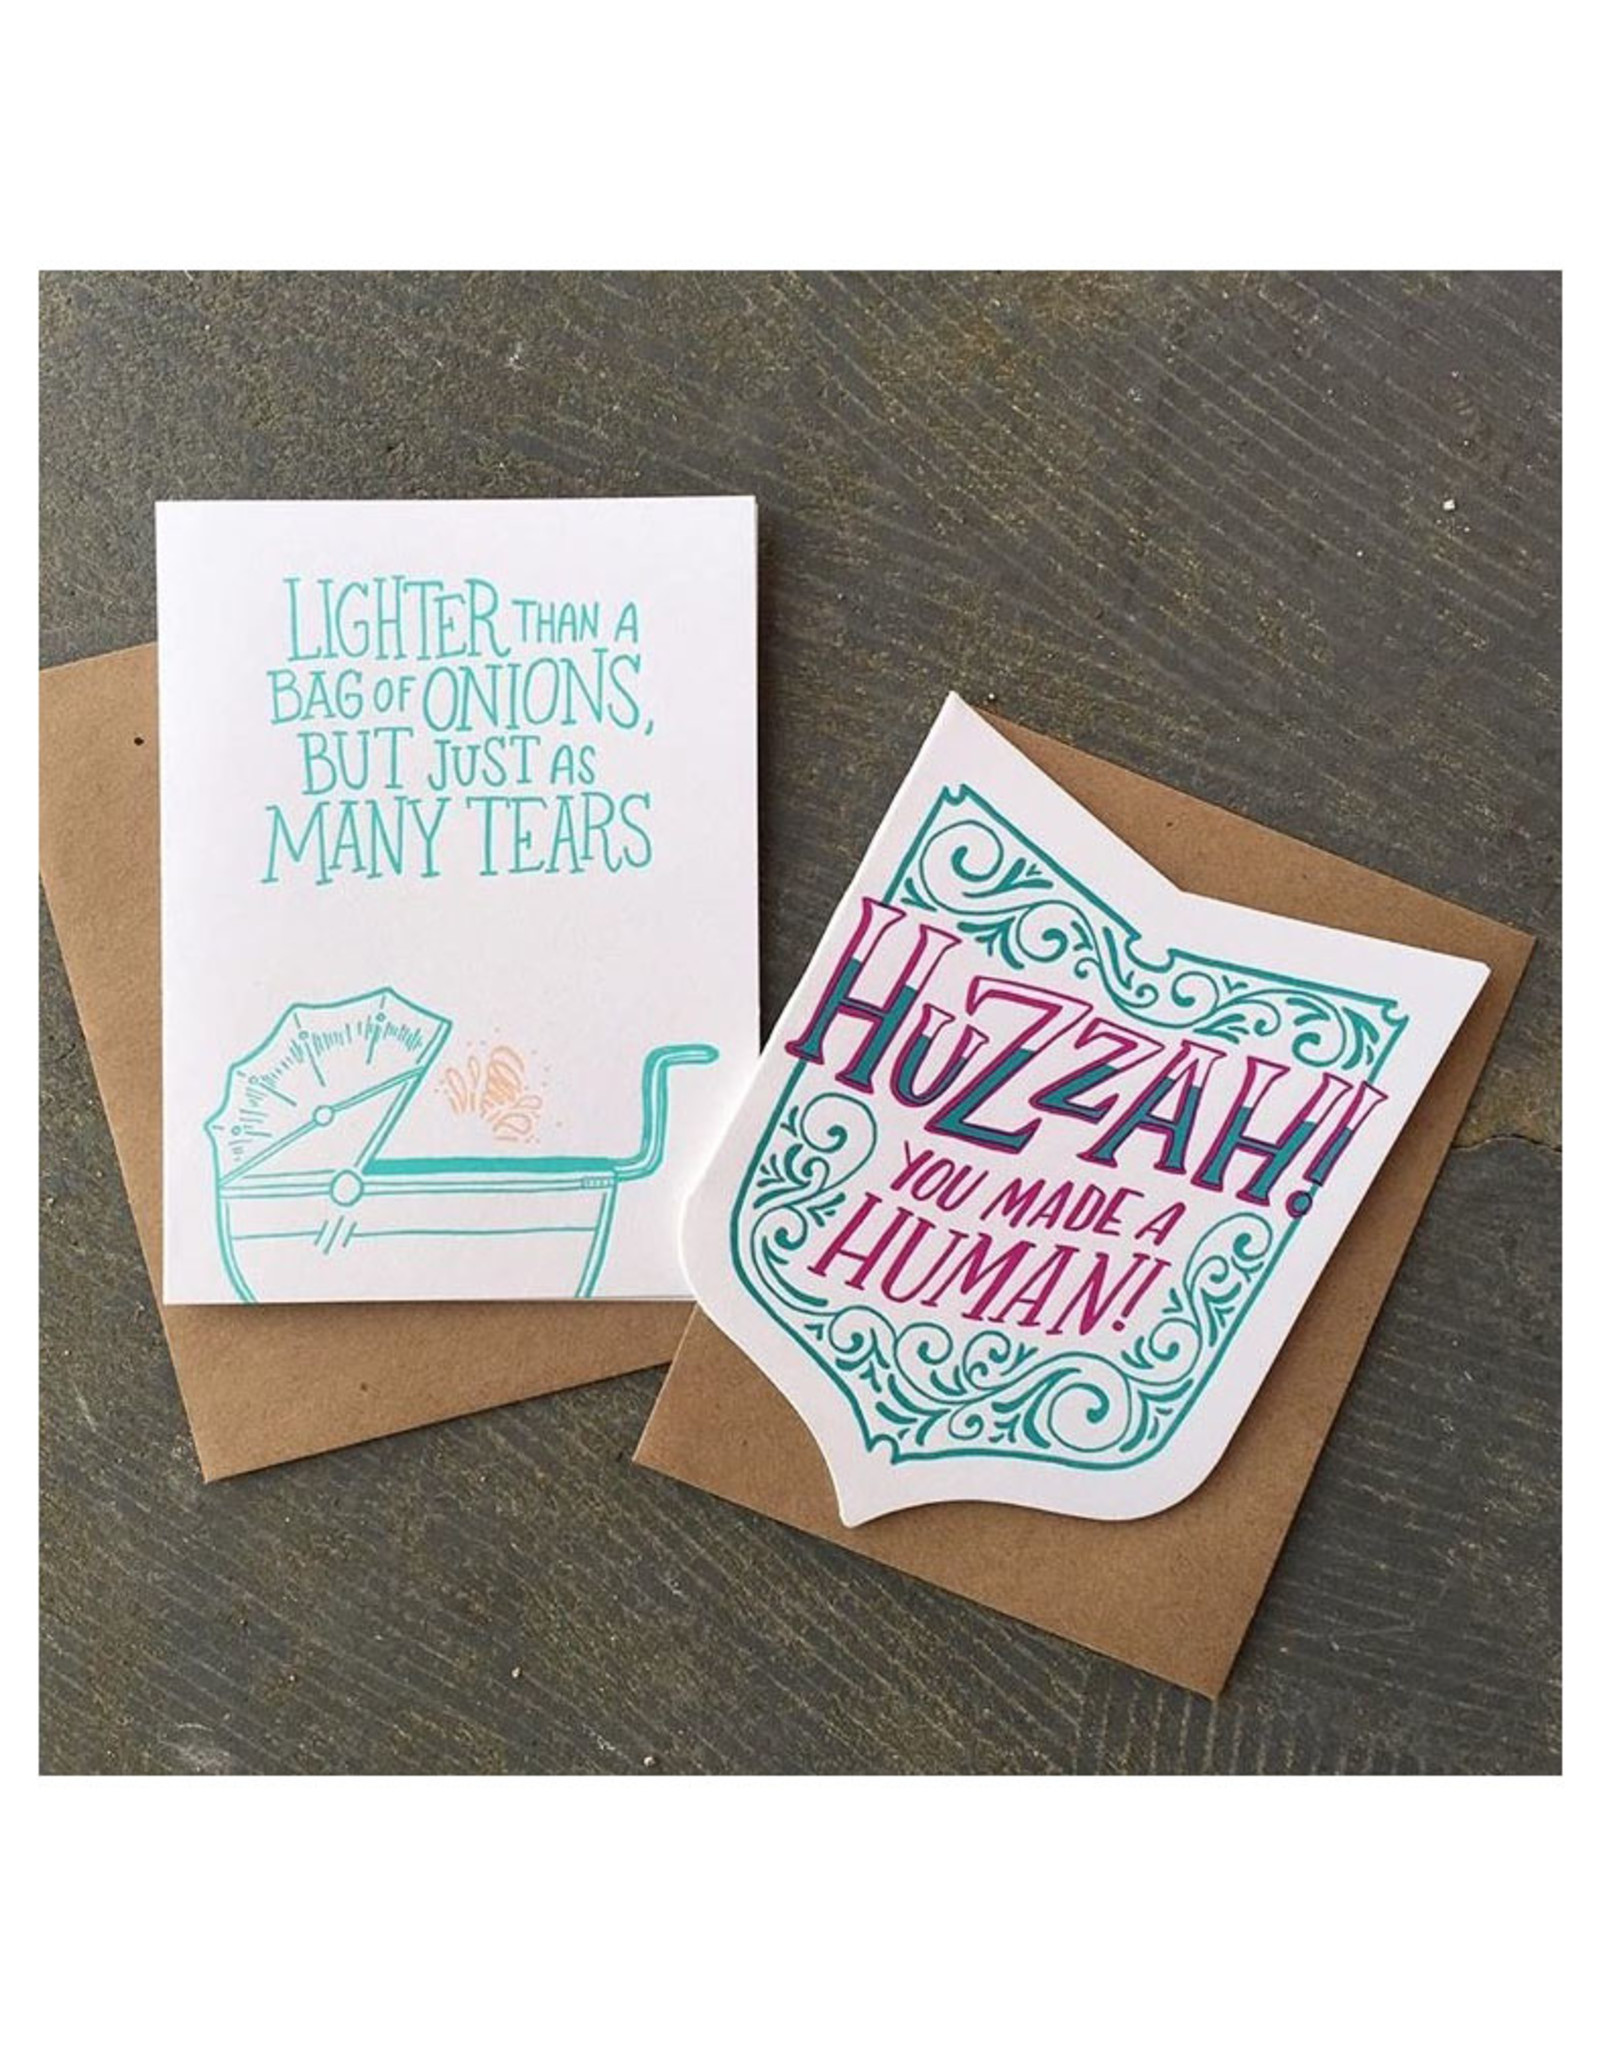 LIGHTER THAN A
BAG OF ONIONS,
BUT JUST AS
MANY TEARS
HUZZAH!
YOU MADE A
HUMAN!